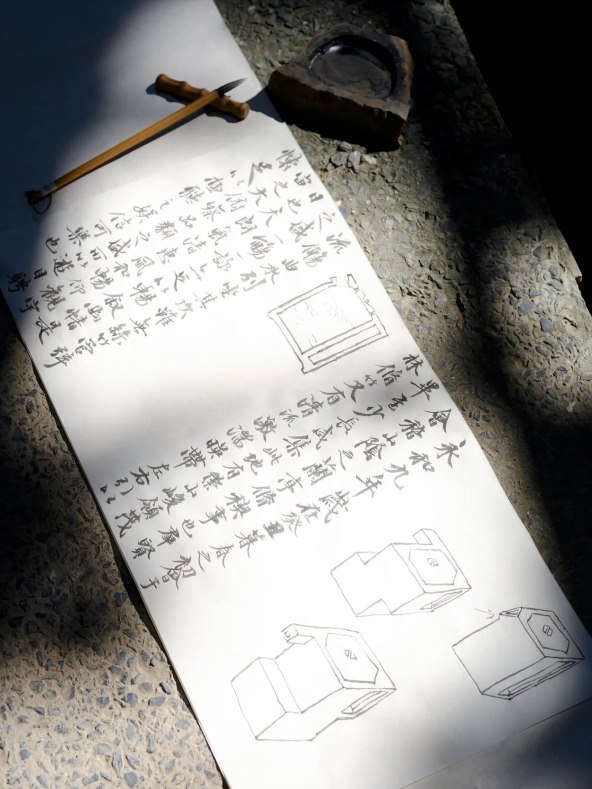 永和九年歲在癸丑暮春之初會于
會稽山陰之蘭亭脩禊事也羣賢
畢至少長咸集此地有崇山峻領茂
林脩竹又有清流激湍暎帶左右引以
流觴曲水列坐其次雖無絲竹管弦
之盛一觴一詠亦足以暢敘幽情是
日也天朗氣清惠風和暢仰觀宇
宙之大俯察品類之盛所以遊目騁
懷足以極視聽之娛信可樂也